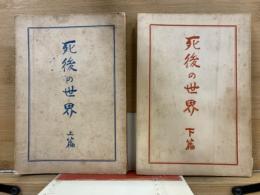 死後の世界
上篇
死後の世界
下篇